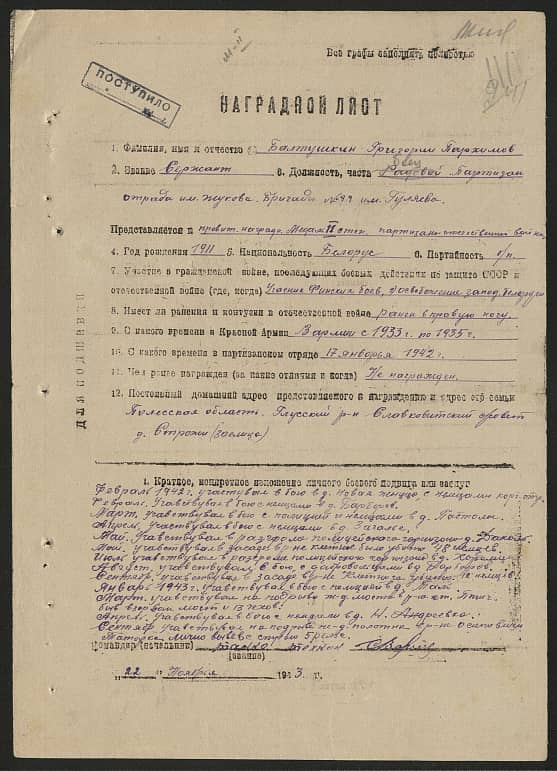 Все графы заполнять полностью
ПОСТУПИЛО
НАГРАДНОЙ ЛИСТ
1. Фамилия, имя и отчество Балтушкин Григорий Пархимов
2. Звание Сержант 3. Должность, часть Рядовой Партизан
отряда им. Жукова. Бригады № 37 им. Гуляева.
Представляется к правит. награде Медаль II степ. партизана отечественной войны
4. Год рождения 1911 5. Национальность Белорус 6. Партийность б/п.
7. Участие в гражданской войне, последующих боевых действиях по защите СССР и
отечественной войне (где, когда) Финских боев, освобождение запад. Белорусси
8. Имеет ли ранения и контузии в отечественной войне ранен в правую ногу.
9. С какого времени в Красной Армии В армии с 1933 г. по 1935 г.
10. С какого времени в партизанском отряде 17 январья 1942 г.
11. Чем ранее награжден (за какие отличия и когда) Не награжден.
12. Постоянный домашний адрес представляемого к награждению и адрес его семьи
Полесская область. Глусский р-н Славковитский совет
д. Строжи
ДЛЯ ПОДШИВКИ
1. Краткое, конкретное изложение личного боевого подвига или заслуг
Февраль 1942 г. участвувал в бою в д. Новая с немцами
Февраль. Участвувал в бою с немцами в д. Барборов.
Март. участвувал в бою с полицией и немцами в д. Постолы.
Апрель. участвувал в бою с немцами в д. Заголье.
Май. Участвувал в разгроме полицейского гарнизона д.
Май. участвувал в засаде в р-не было убито 48 немцев.
Июль участвувал в разгроме полицейского гарнизона в д.
Август. участвувал в бою, с добровольцами в д. Барборов.
Сентябрь. участвувал в засаде в р-не убито 12 немцев
Январь 1943 г. участвувал в бою с полицией в д.
Март. участвувал на подрыв ж.д. моста в р-не ст. Птич.
был взорван мост и 13 чехов.
Апрель. Участвувал в бою с немцами в д. Н. Андреевка.
участвувал на подрыв ж-д. полотна в р-не Осиповичи
Татарка лично вывел с строю 5 рельс.
Командир (начальник)
(звание)
„22" Ноября 1943 г.